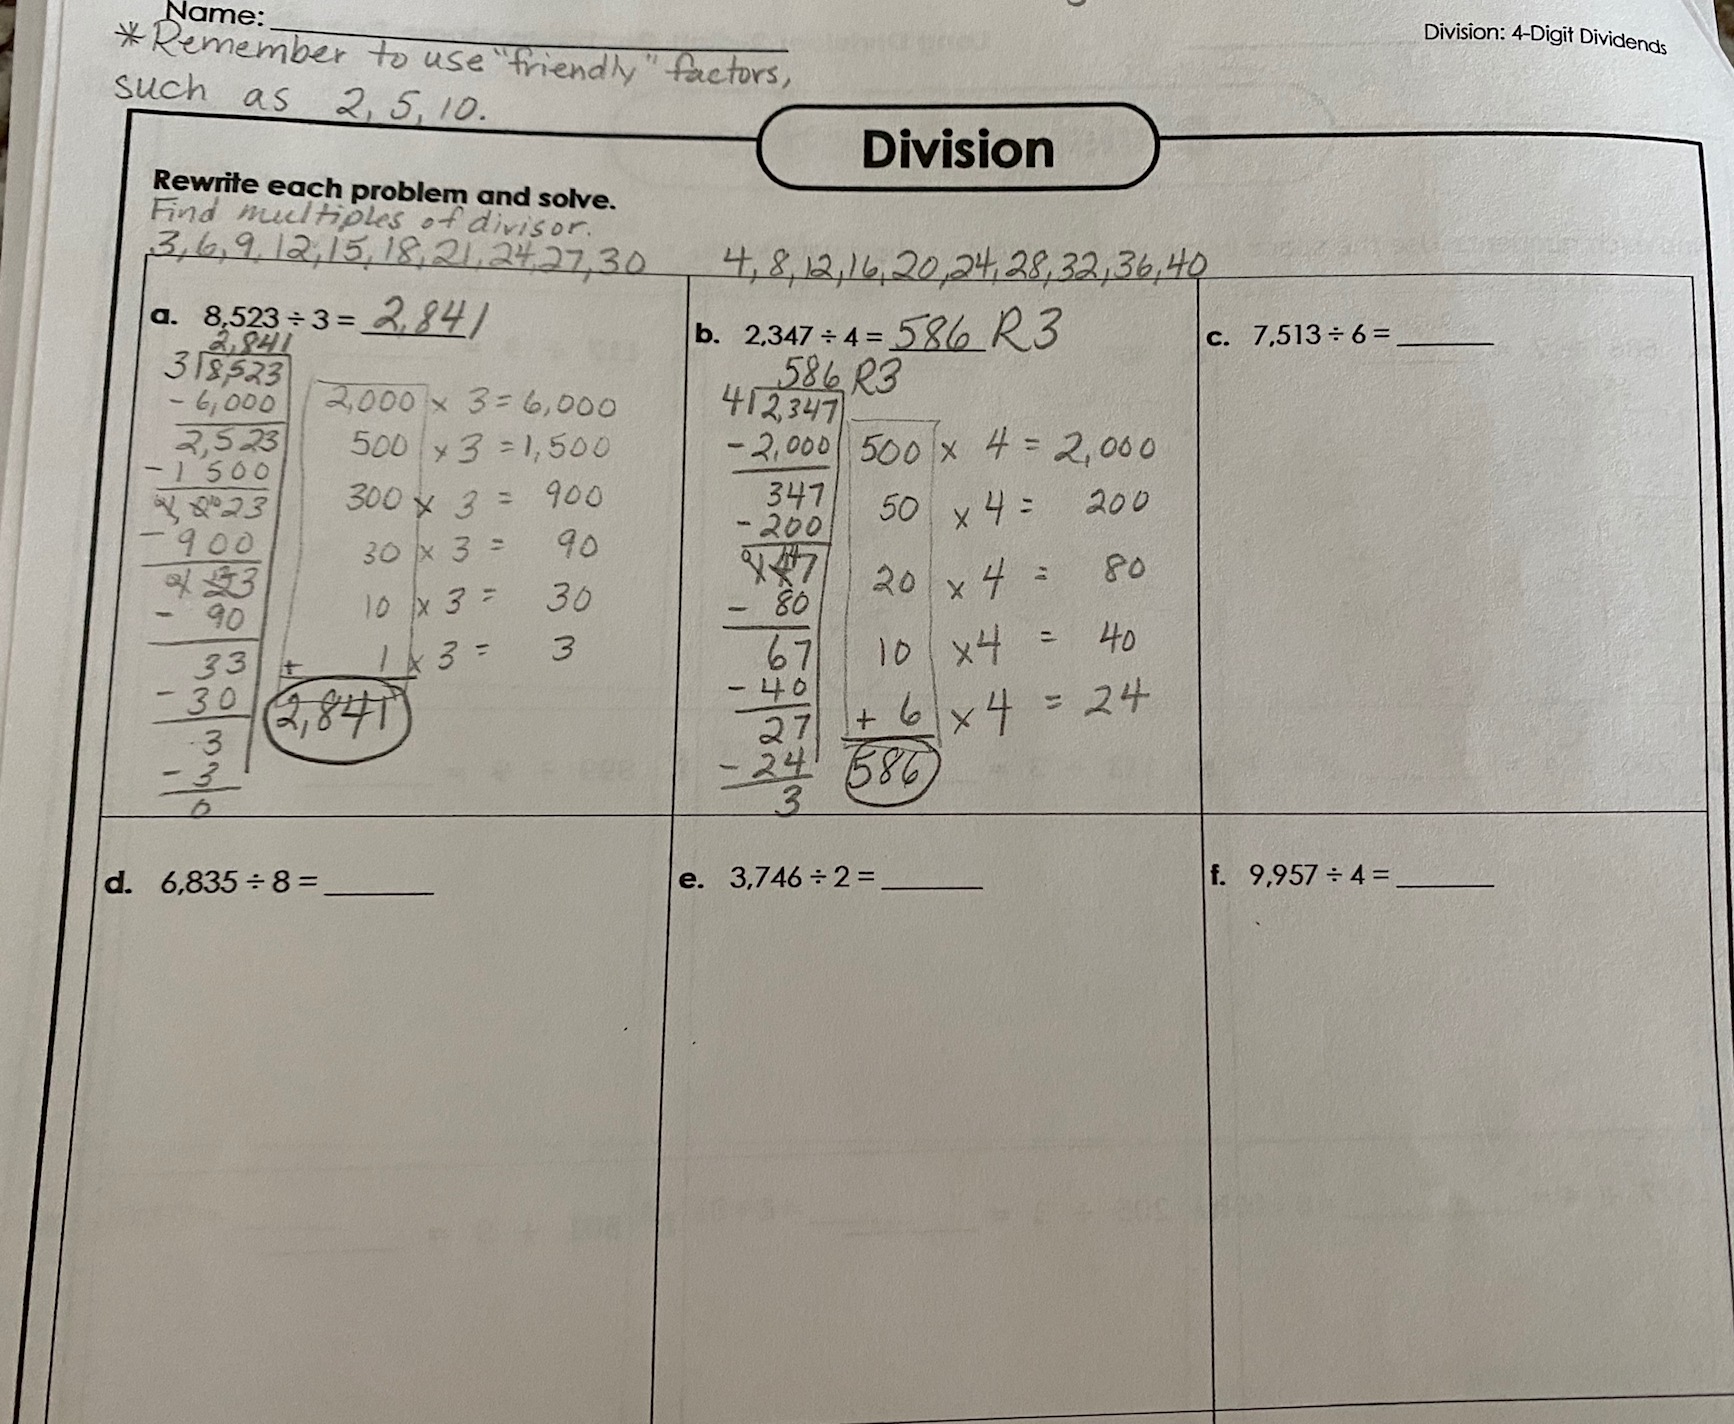 Name:
Division: 4-Digit Dividends
*Remember to use "friendly" factors,
such as 2, 5, 10.
Division
Rewrite each problem and solve.
Find multiples of divisor.
3, 6, 9, 12, 15, 18, 21, 24, 27, 30
4, 8, 12, 16, 20, 24, 28, 32, 36, 40
a. 8,523 ÷ 3 = 2,841
2,841
3 8,523
- 6,000
2,523
- 1 500
1,023
- 900
123
- 90
33
- 30
3
- 3
0
2,000 x 3 = 6,000
500 x 3 = 1,500
300 x 3 = 900
30 x 3 = 90
10 x 3 = 30
+ 1 x 3 = 3
2,841
b. 2,347 ÷ 4 = 586 R3
586 R3
4 2,347
- 2,000
347
- 200
147
- 80
67
- 40
27
- 24
3
500 x 4 = 2,000
50 x 4 = 200
20 x 4 = 80
10 x 4 = 40
+ 6 x 4 = 24
586
c. 7,513 ÷ 6 =
d. 6,835 ÷ 8 =
e. 3,746 ÷ 2 =
f. 9,957 ÷ 4 =